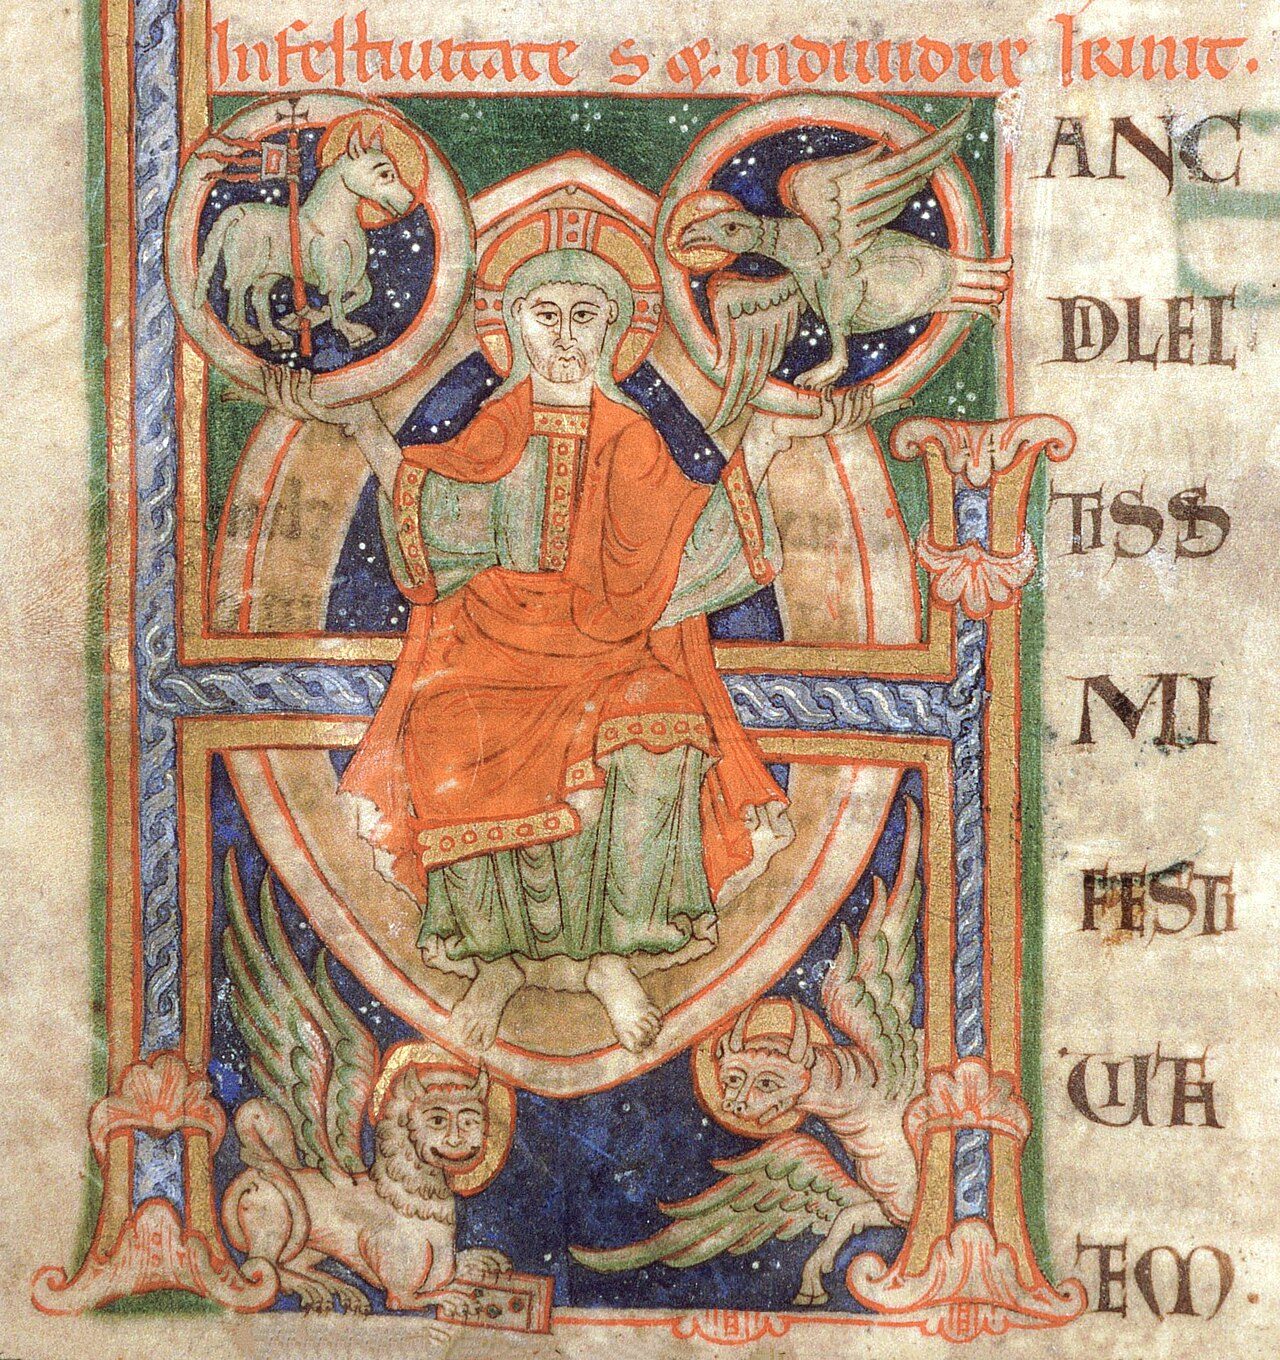 In festiuitate S &. indiuidue Trinit.
hANC
DILEC
TISSI
MI
FESTI
UITA
TEM.